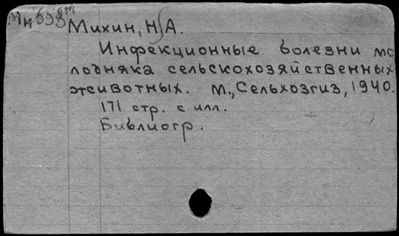 Михин, Н.А.
Инфекционные болезни мо
лодняка сельскохозяйственных
животных. М., Сельхозгиз, 1940.
171 стр. с илл.
Библиогр.